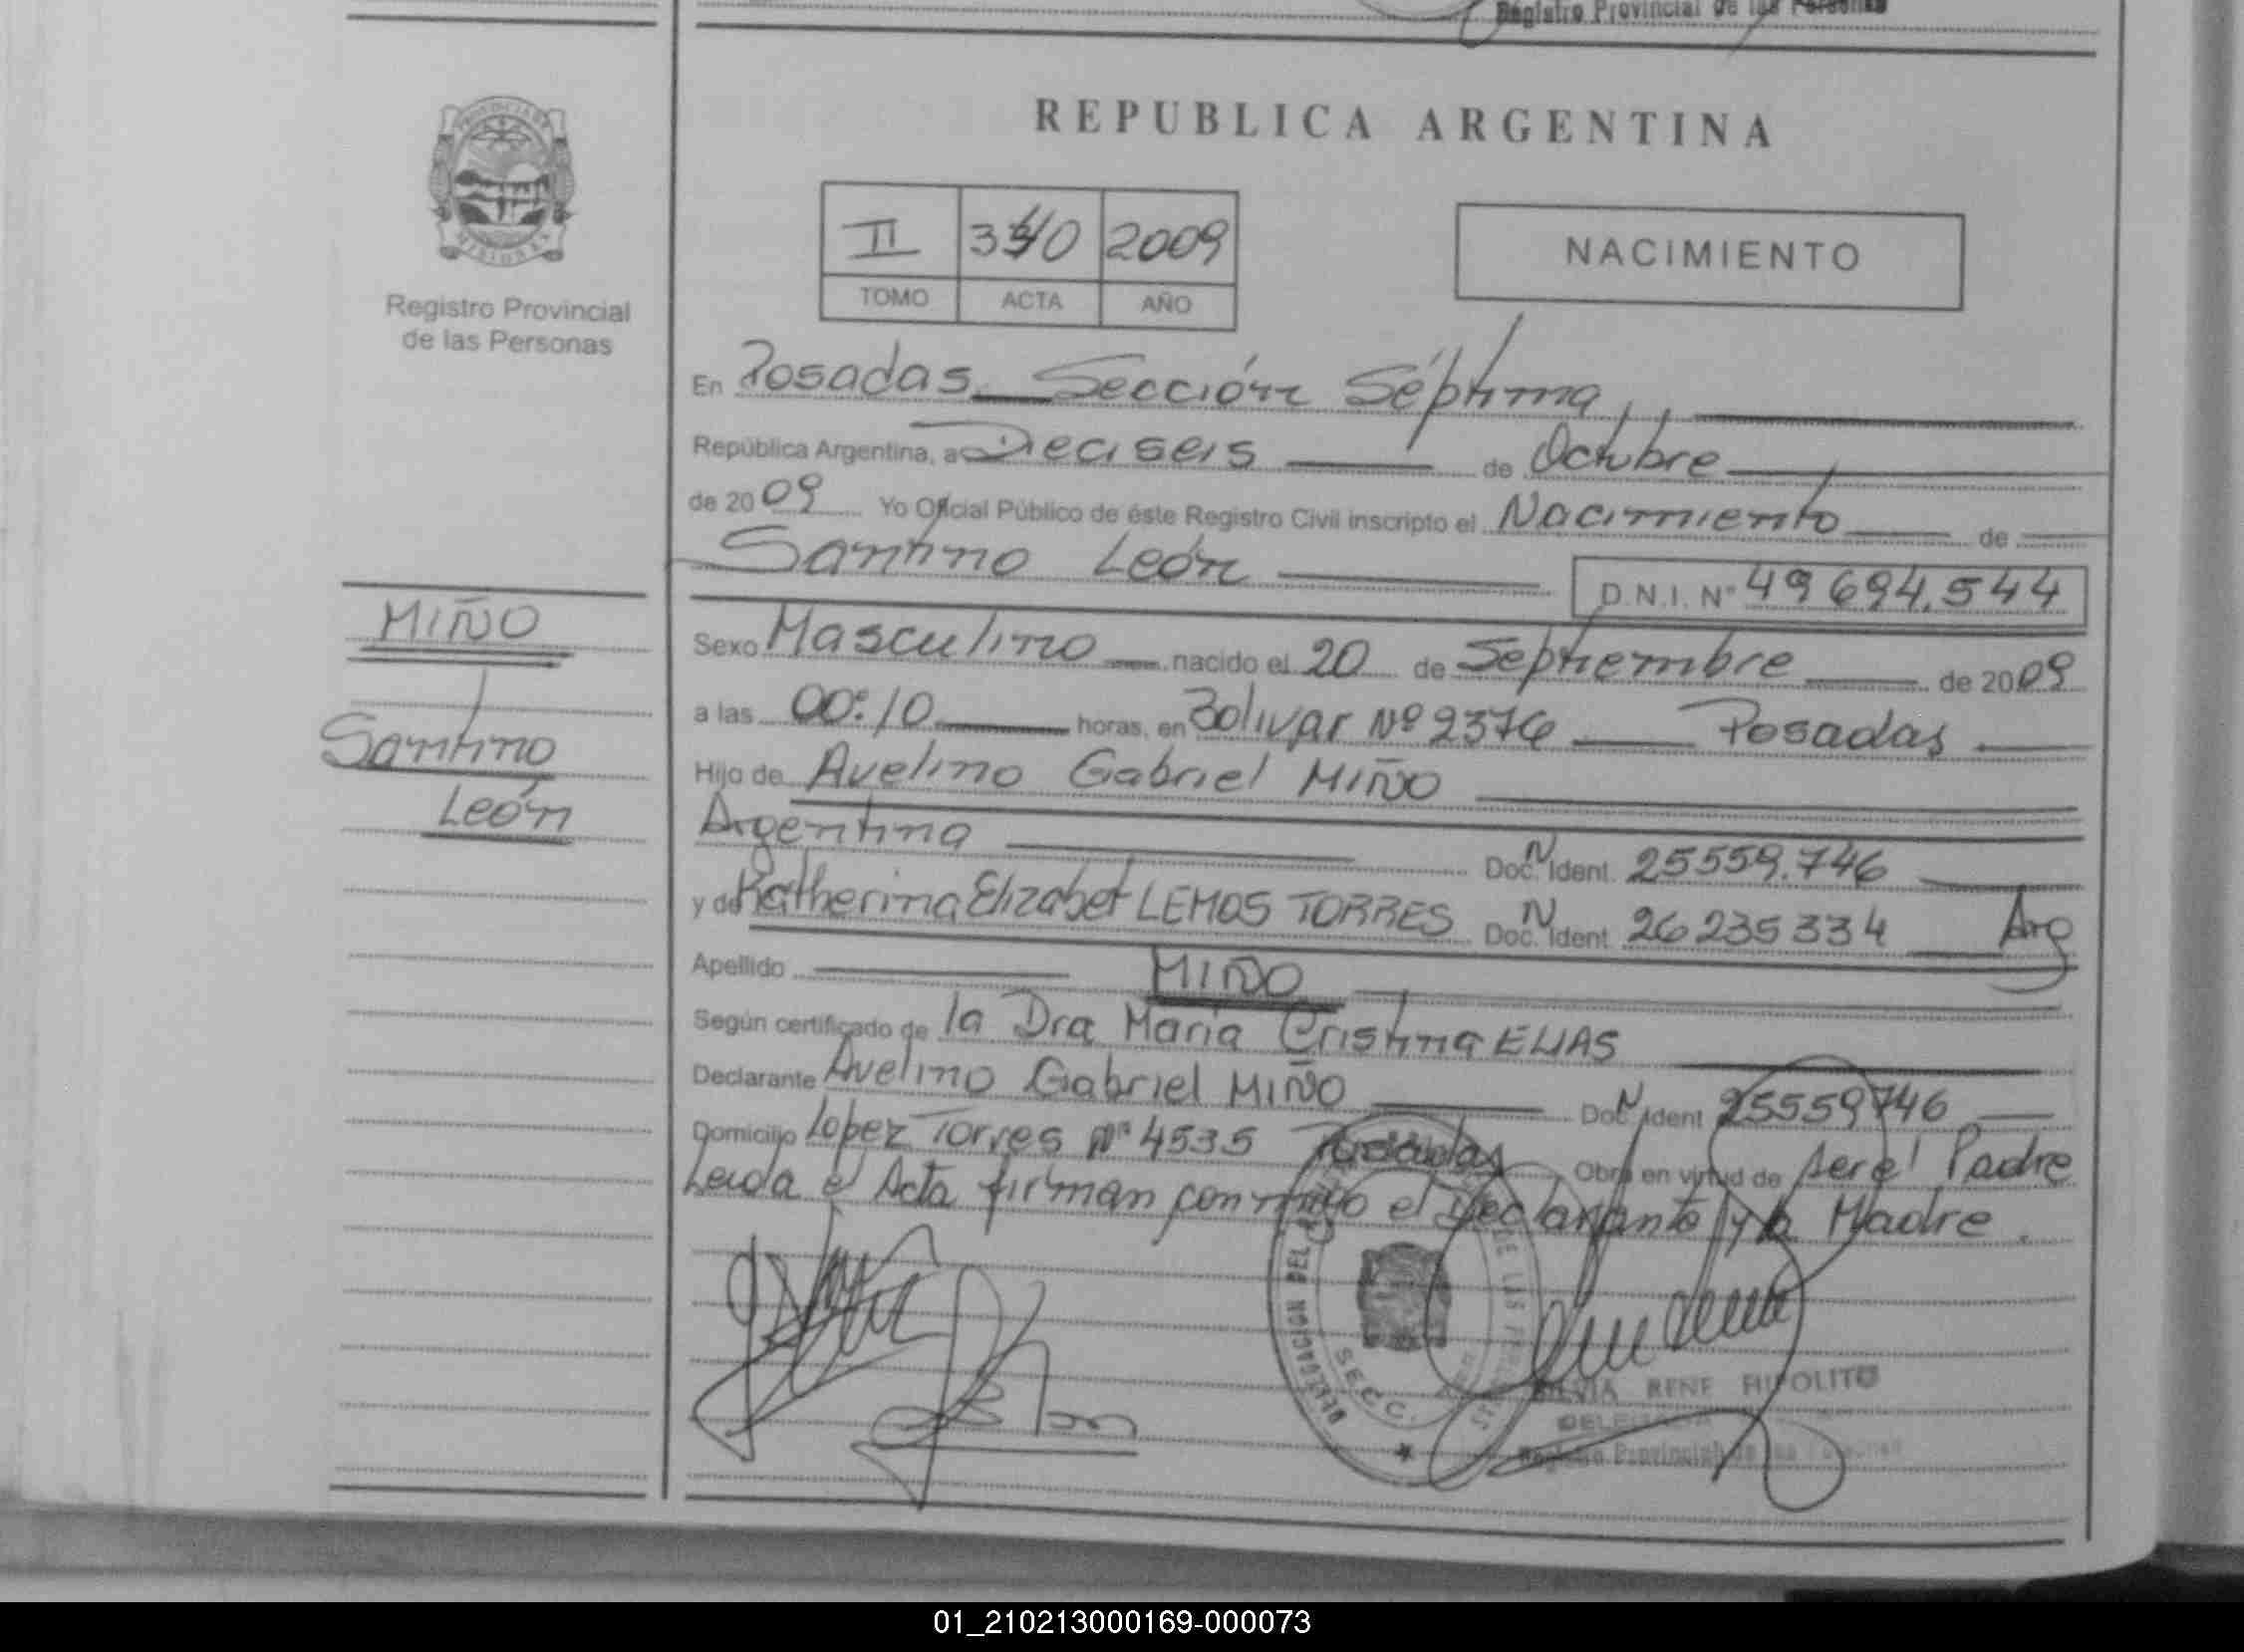 Registro Provincial de las Personas
REPUBLICA ARGENTINA
PROVINCIA DE
MISIONES
Registro Provincial
de las Personas
II 340 2009
TOMO ACTA AÑO
NACIMIENTO
En Posadas Sección Séptima,
República Argentina, a Dieciseis de Octubre
de 2009 Yo Oficial Público de éste Registro Civil inscripto el Nacimiento de
Santino León D.N.I. Nº 49694.544
MIÑO
Santino
León
Sexo Masculino nacido el 20 de Septiembre de 2009
a las 00:10 horas, en Bolivar Nº 2376 Posadas
Hijo de Avelino Gabriel MIÑO
Argentina Doc. N Ident. 25559.746
y de Katherina Elizabet LEMOS TORRES Doc. N Ident. 26235334 Arg
Apellido MIÑO
Según certificado de la Dra Maria Cristina ELIAS
Declarante Avelino Gabriel MIÑO Doc. N Ident 25559746
Domicilio Lopez Torres Nº 4535 Posadas Obra en virtud de ser el Padre
Leida el Acta firman conmigo el Declarante y la Madre.
DELEGACION DEL DE LAS
SECC.
SILVIA RENE HIPOLITO
DELEGADA
Registro Provincial de las Personas
01_210213000169-000073